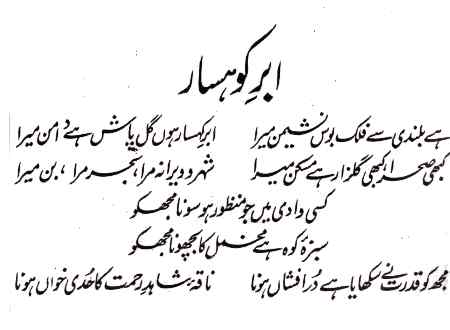 ابرِ کوہسار
ہے بلندی سے فلک بوس نشیمن میرا ابرِ کہسار ہوں گل پاش ہے دامن میرا
کبھی صحرا، کبھی گلزار ہے مسکن میرا شہر و ویرانہ مرا، بحر مرا، بن میرا
کسی وادی میں جو منظور ہو سونا مجھکو
سبزۂ کوہ ہے مخمل کا بچھونا مجھکو
مجھ کو قدرت نے سکھایا ہے دُر افشاں ہونا ناقۂ شاہدِ رحمت کا حُدی خواں ہونا